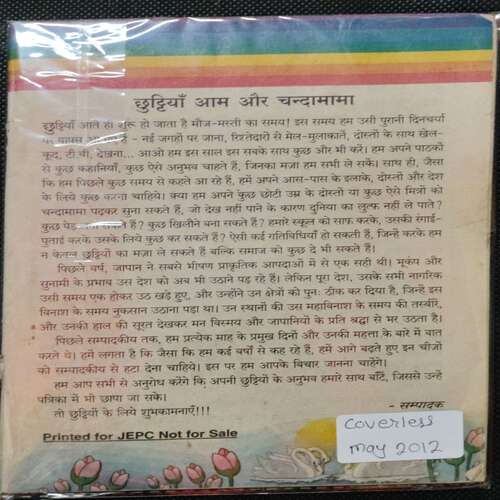 छुट्टियाँ आम और चन्दामामा
छुट्टियाँ आते ही शुरू हो जाता है मौज-मस्ती का समय! इस समय हम उसी पुरानी दिनचर्या
पर वापस आ जाते हैं - नई जगहों पर जाना, रिश्तेदारों से मेल-मुलाकातें, दोस्तों के साथ खेल-
कूद, टी.वी. देखना... आओ हम इस साल इस सबके साथ कुछ और भी करें। हम अपने पाठकों
से कुछ कहानियाँ, कुछ ऐसे अनुभव चाहते हैं, जिनका मज़ा सभी ले सकें। साथ ही, जैसा
कि हम पिछले कुछ समय से कहते आ रहे हैं, हमें अपने आस-पास के इलाके, दोस्तों और देश
के लिये कुछ करना चाहिये। क्या हम अपने कुछ छोटी उम्र के दोस्तों या कुछ ऐसे मित्रों को
चन्दामामा पढ़कर सुना सकते हैं, जो देख नहीं पाने के कारण दुनिया का लुत्फ नहीं ले पाते?
कुछ पेड़ लगा सकते हैं? कुछ खिलौने बना सकते हैं? हमारे स्कूल को साफ करके, उसकी रंगाई-
पुताई करके उसके लिये कुछ कर सकते हैं? ऐसी कई गतिविधियाँ हो सकती हैं, जिन्हें करके हम
न केवल छुट्टियों का मज़ा ले सकते हैं बल्कि समाज को कुछ दे भी सकते हैं।
पिछले वर्ष, जापान ने सबसे भीषण प्राकृतिक आपदाओं में से एक सही थी। भूकंप और
सुनामी के प्रभाव उस देश को अब भी उठाने पड़ रहे हैं। लेकिन पूरा देश, उसके सभी नागरिक
उसी समय एक होकर उठ खड़े हुए, और उन्होंने उन क्षेत्रों को पुनः ठीक कर दिया है, जिन्हें इस
विनाश के समय नुकसान उठाना पड़ा था। उन स्थानों की उस महाविनाश के समय की तस्वीरें,
और उनकी हाल की सूरत देखकर मन विस्मय और जापानियों के प्रति श्रद्धा से भर उठता है।
पिछले सम्पादकीय तक, हम प्रत्येक माह के प्रमुख दिनों और उनकी महत्ता के बारे में बात
करते थे। हमें लगता है कि जैसा कि हम कई वर्षों से कह रहे हैं, हमें आगे बढ़ते हुए इन चीज़ों
को सम्पादकीय से हटा देना चाहिये। इस पर हम आपके बिचार जानना चाहेंगे।
हम आप सभी से अनुरोध करेंगे कि अपनी छुट्टियों के अनुभव हमारे साथ बाँटें, जिससे उन्हें
पत्रिका में भी छापा जा सके।
तो छुट्टियों के लिये शुभकामनाएँ!!!
- सम्पादक
Printed for JEPC Not for Sale
Coverless
may 2012